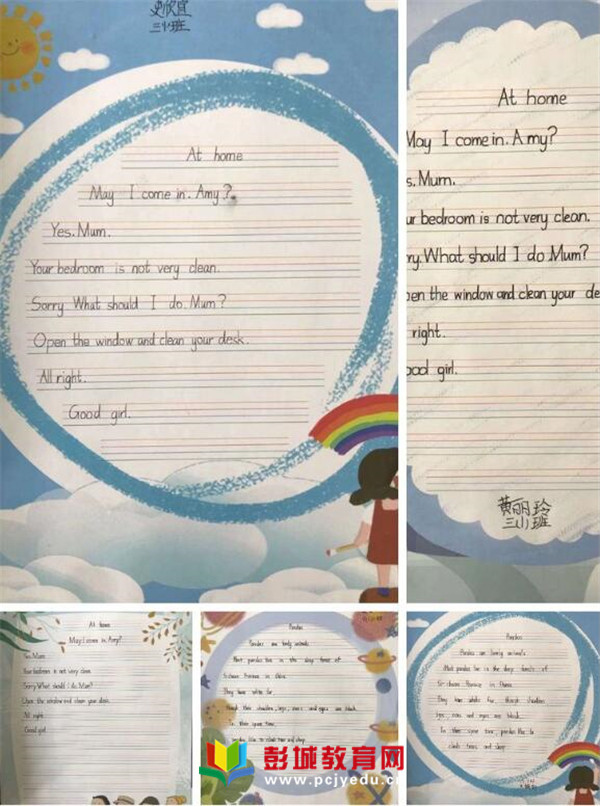 At home
May I come in. Amy?
Yes. Mum.
Your bedroom is not very clean.
Sorry What should I do. Mum?
Open the window and clean your desk.
All right.
Good girl.
At home
May I come in. Amy?
s. Mum.
ur bedroom is not very clean.
ry. What should I do. Mum?
pen the window and clean your de
right.
ood girl.
黄丽玲
At home
May I come in. Amy?
Yes. Mum.
Your bedroom is not very clean.
Sorry. What should I do. Mum?
Open the window and clean your desk.
All right.
Good girl.
Pandas
Pandas are lovely animals.
Most pandas live in the deep forest of
Sichuan Province in China.
They have white fur
though their shoulders, legs, and eyes are black.
In their spare time,
pandas like to climb trees and sleep.
Pandas
Pandas are lovely animals.
Most pandas live in the deep forests of
Sichuan Province in China.
They have white fur, though shoulders
legs, ears and eyes are black.
In their spare time, pandas like to
climb trees and sleep.
彭城教育网
www.pcjyedu.com